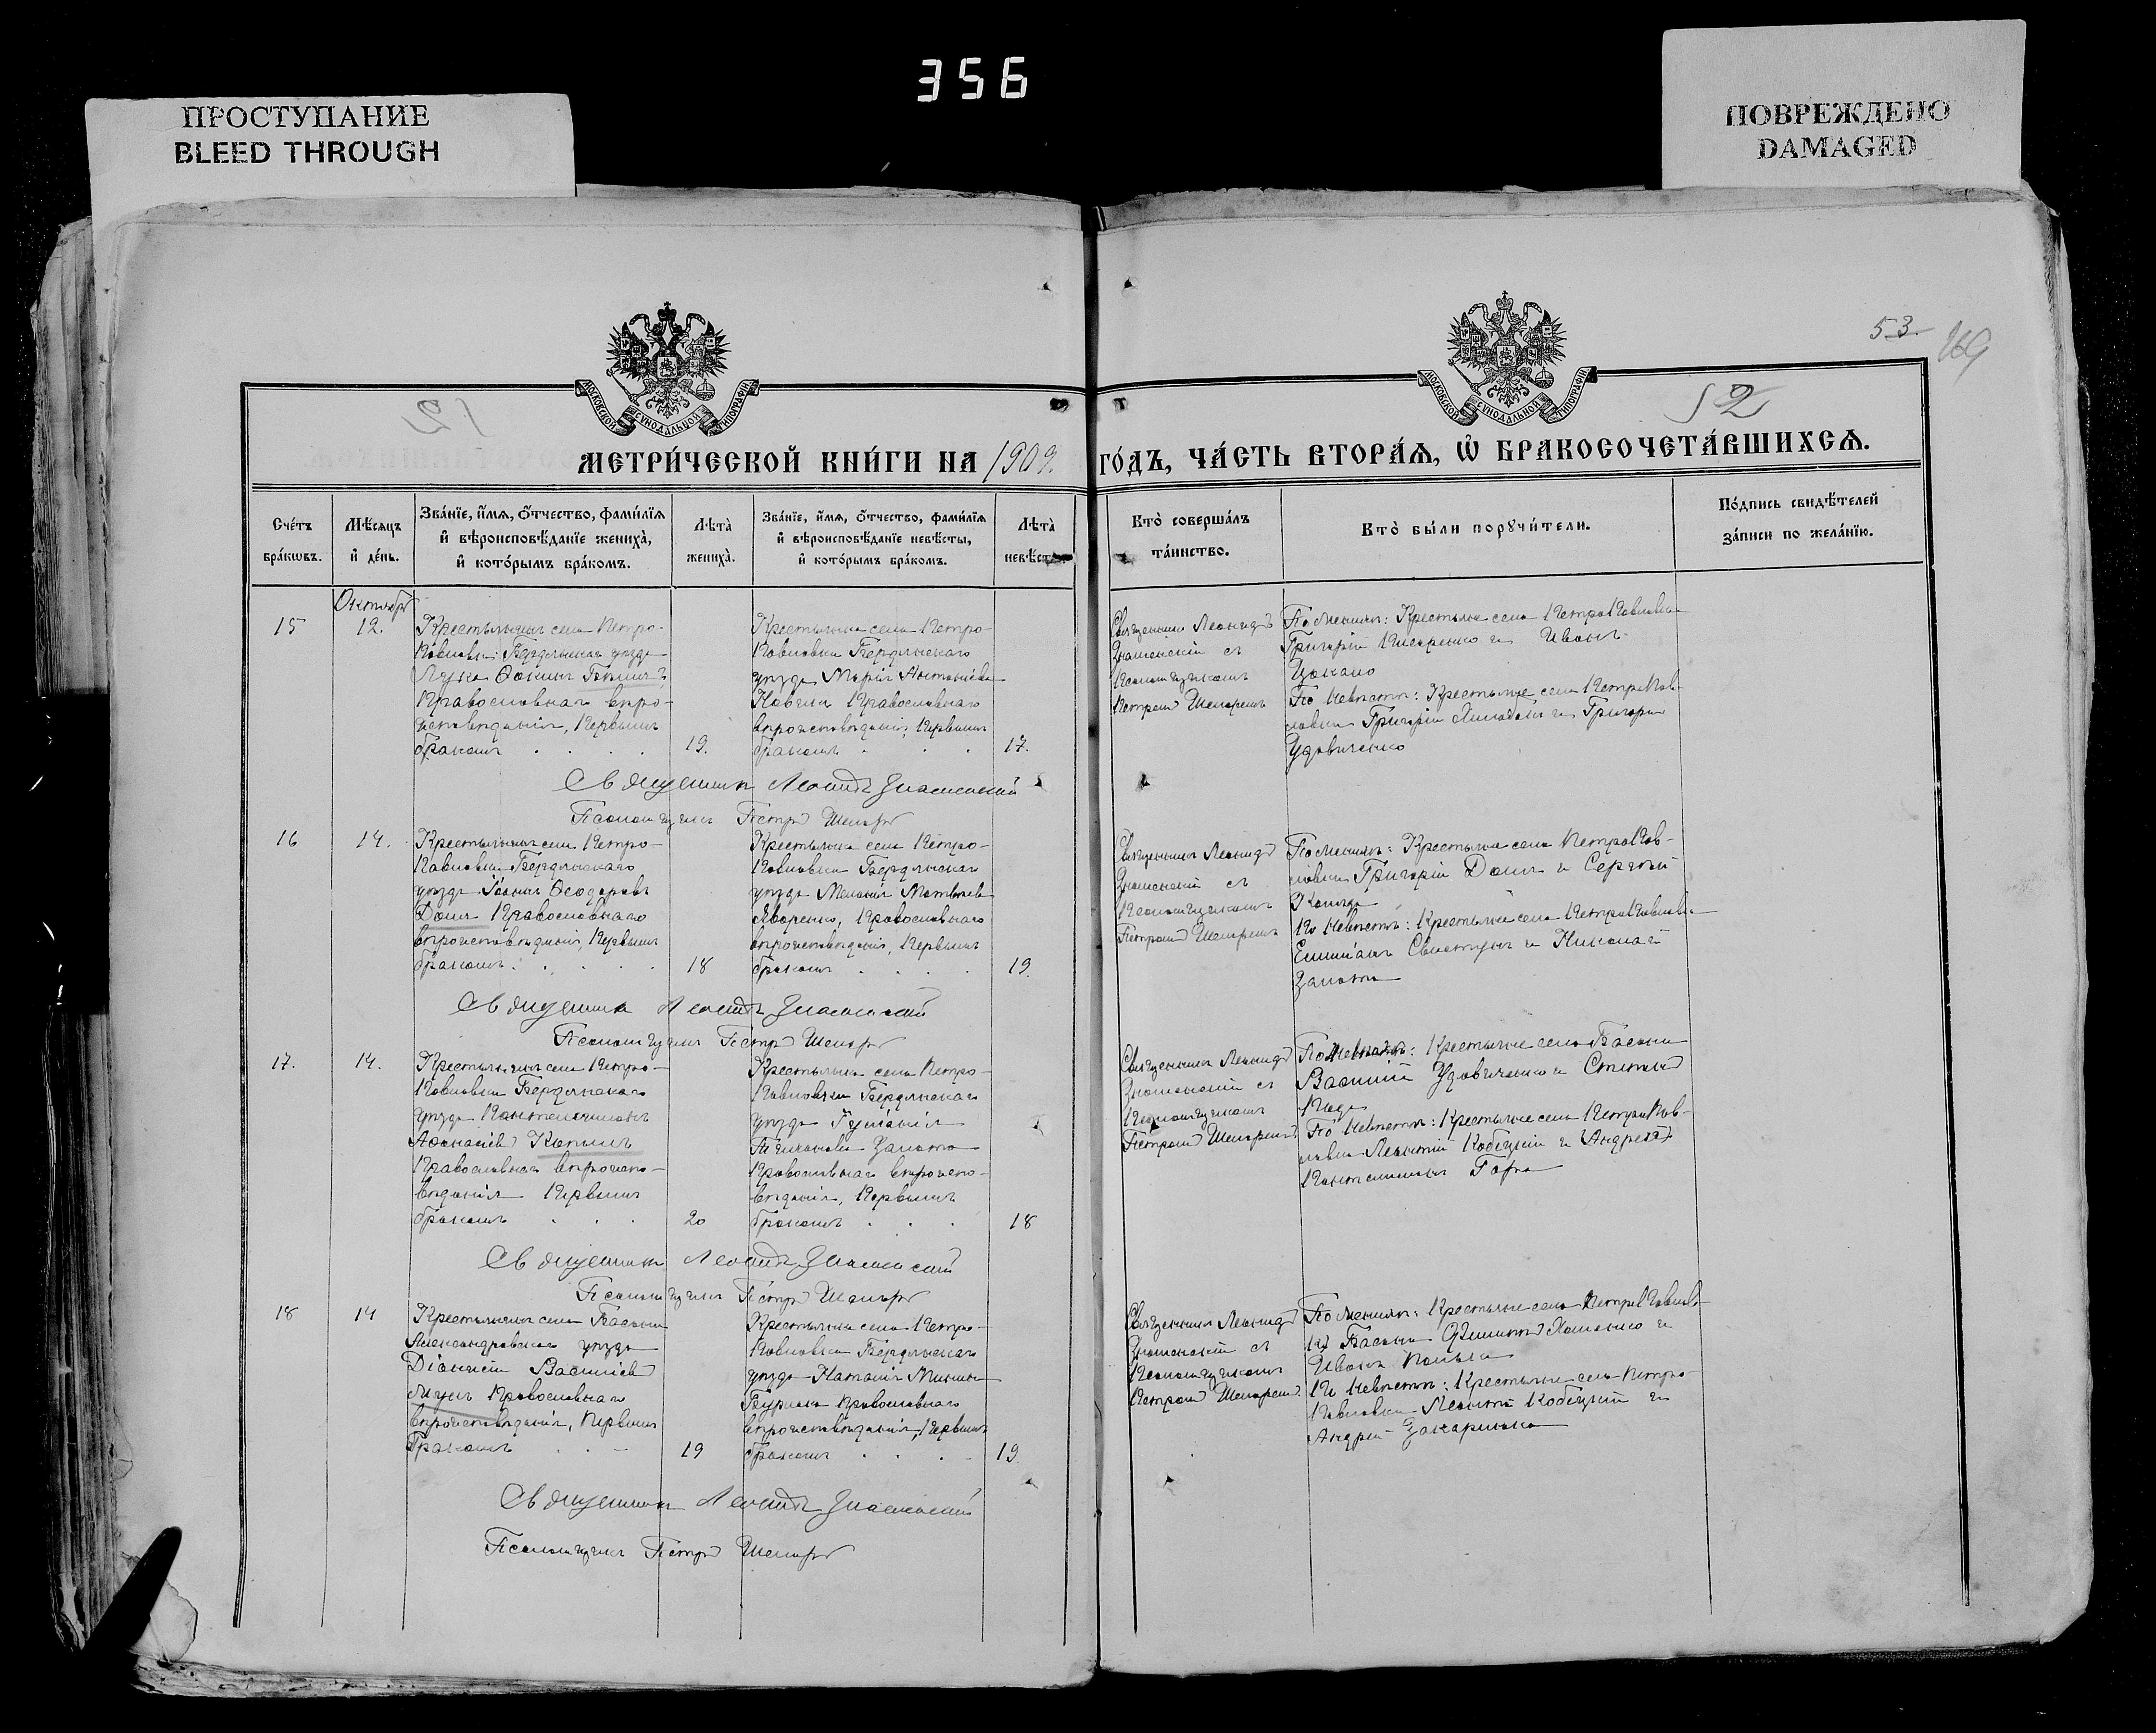 356
ПРОСТУПАНИЕ
BLEED THROUGH
ПОВРЕЖДЕНО
DAMAGED
53.
169
12
МОСКОВСКОЙ СУНОДАЛЬНОЙ ТИПОГРАФІИ
МОСКОВСКОЙ СУНОДАЛЬНОЙ ТИПОГРАФІИ
МЕТРИ́ЧЕСКОЙ КНИ́ГИ НА 1909. ГО́ДЪ, ЧА́СТЬ ВТОРА́Я, Ѿ БРАКОСОЧЕТА́ВШИХСЯ.
Сче́тъ бра́кѡвъ.
Мѣ́сяцъ и҆ де́нь.
Зва́нїе, и҆́мя, ѻ҆́тчество, фами́лїя и҆ вѣроисповѣ́данїе жениха̀, и҆ кото́рымъ бра́комъ.
Лѣ́та̀ жениха̀.
Зва́нїе, и҆́мя, ѻ҆́тчество, фами́лїя и҆ вѣроисповѣ́данїе невѣ́сты, и҆ кото́рымъ бра́комъ.
Лѣ́та̀ невѣ́сты.
Кто̀ соверша́лъ та́инство.
Кто̀ бы́ли порꙋчи́тели.
По́дпись свидѣ́телей за́писи по жела́нїю.
Октябрь
15
12.
Крестьянинъ села Петро-
Павловки Бердянскаго уѣзда
Лука Ѳокинъ
Православнаго вѣро-
исповѣданія, Первымъ
бракомъ
19.
Крестьянка села Петро-
Павловки Бердянскаго
уѣзда Марія Антоніева
Православнаго
вѣроисповѣданія, Первымъ
бракомъ
17.
Священникъ Леонидъ
Знаменскій съ
Псаломщикомъ
Петромъ
По женихѣ: Крестьяне села ПетроПавловки
Григорій Писаренко и Иванъ
Цокало
По невѣстѣ: Крестьяне села ПетроПав-
ловки Григорій и Григорій
Удовиченко
Священникъ Леонидъ Знаменскій
Псаломщикъ Петръ
16
14.
Крестьянинъ села Петро-
Павловки Бердянскаго
уѣзда Іоаннъ Ѳеодоровъ
Православнаго
вѣроисповѣданія, Первымъ
бракомъ
18
Крестьянка села Петро-
Павловки Бердянскаго
уѣзда Меланія Матвѣева
Яворенко, Православнаго
вѣроисповѣданія, Первымъ
бракомъ
19.
Священникъ Леонидъ
Знаменскій съ
Псаломщикомъ
Петромъ
По женихѣ: Крестьяне села ПетроПав-
ловки Григорій и Сергѣй
По невѣстѣ: Крестьяне села ПетроПавловки
Свистунъ и Николай
Священникъ Леонидъ Знаменскій
Псаломщикъ Петръ
17.
14.
Крестьянинъ села Петро-
Павловки Бердянскаго
уѣзда Пантелеимонъ
Аѳанасіевъ
Православнаго вѣроиспо-
вѣданія Первымъ
бракомъ
20
Крестьянка села Петро-
Павловки Бердянскаго
уѣзда
Православнаго вѣроиспо-
вѣданія, Первымъ
бракомъ
18
Священникъ Леонидъ
Знаменскій съ
Псаломщикомъ
Петромъ
Крестьяне села Басани
Василій Удовиченко и
По невѣстѣ: Крестьяне села ПетроПав-
ловки Леонтій Кобецкій и Андрей
Священникъ Леонидъ Знаменскій
Псаломщикъ Петръ
18
14
Крестьянинъ села Басани
Александровскаго уѣзда
Діонисій Василіевъ
Православнаго
вѣроисповѣданія, Первымъ
бракомъ
19
Крестьянка села Петро-
Павловки Бердянскаго
уѣзда Наталія
Православнаго
вѣроисповѣданія, Первымъ
бракомъ
19.
Священникъ Леонидъ
Знаменскій съ
Псаломщикомъ
Петромъ
По женихѣ: Крестьяне села
Басани и
Иванъ
По невѣстѣ: Крестьяне села Петро-
Павловки Леонтій Кобецкій и
Андрей
Священникъ Леонидъ Знаменскій
Псаломщикъ Петръ